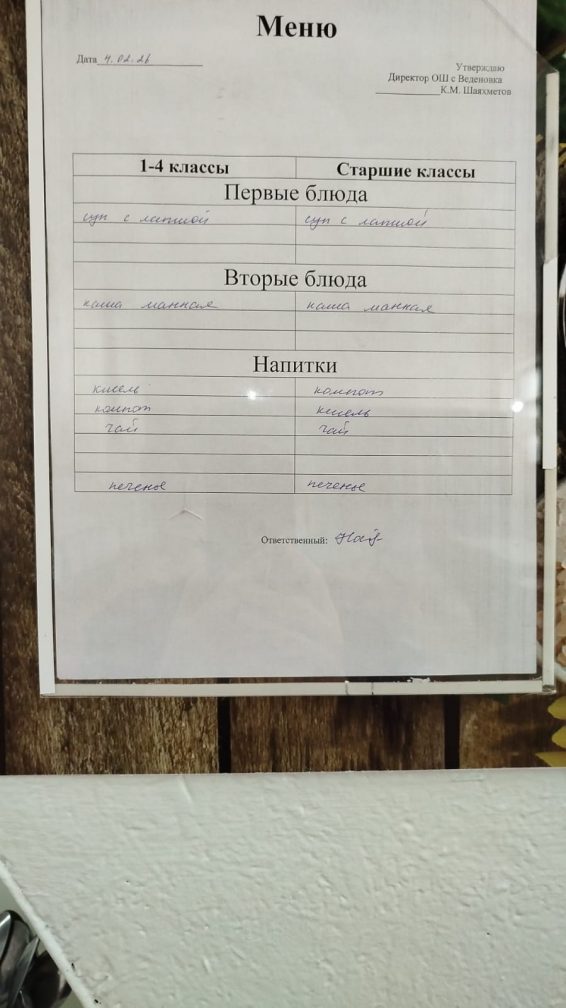 Меню
Дата 4.02.26
Утверждаю
Директор ОШ с Веденовка
К.М. Шаяхметов
1-4 классы Старшие классы
Первые блюда
суп с лапшой суп с лапшой
Вторые блюда
каша манная каша манная
Напитки
кисель компот
компот кисель
чай чай
печенье печенье
Ответственный: